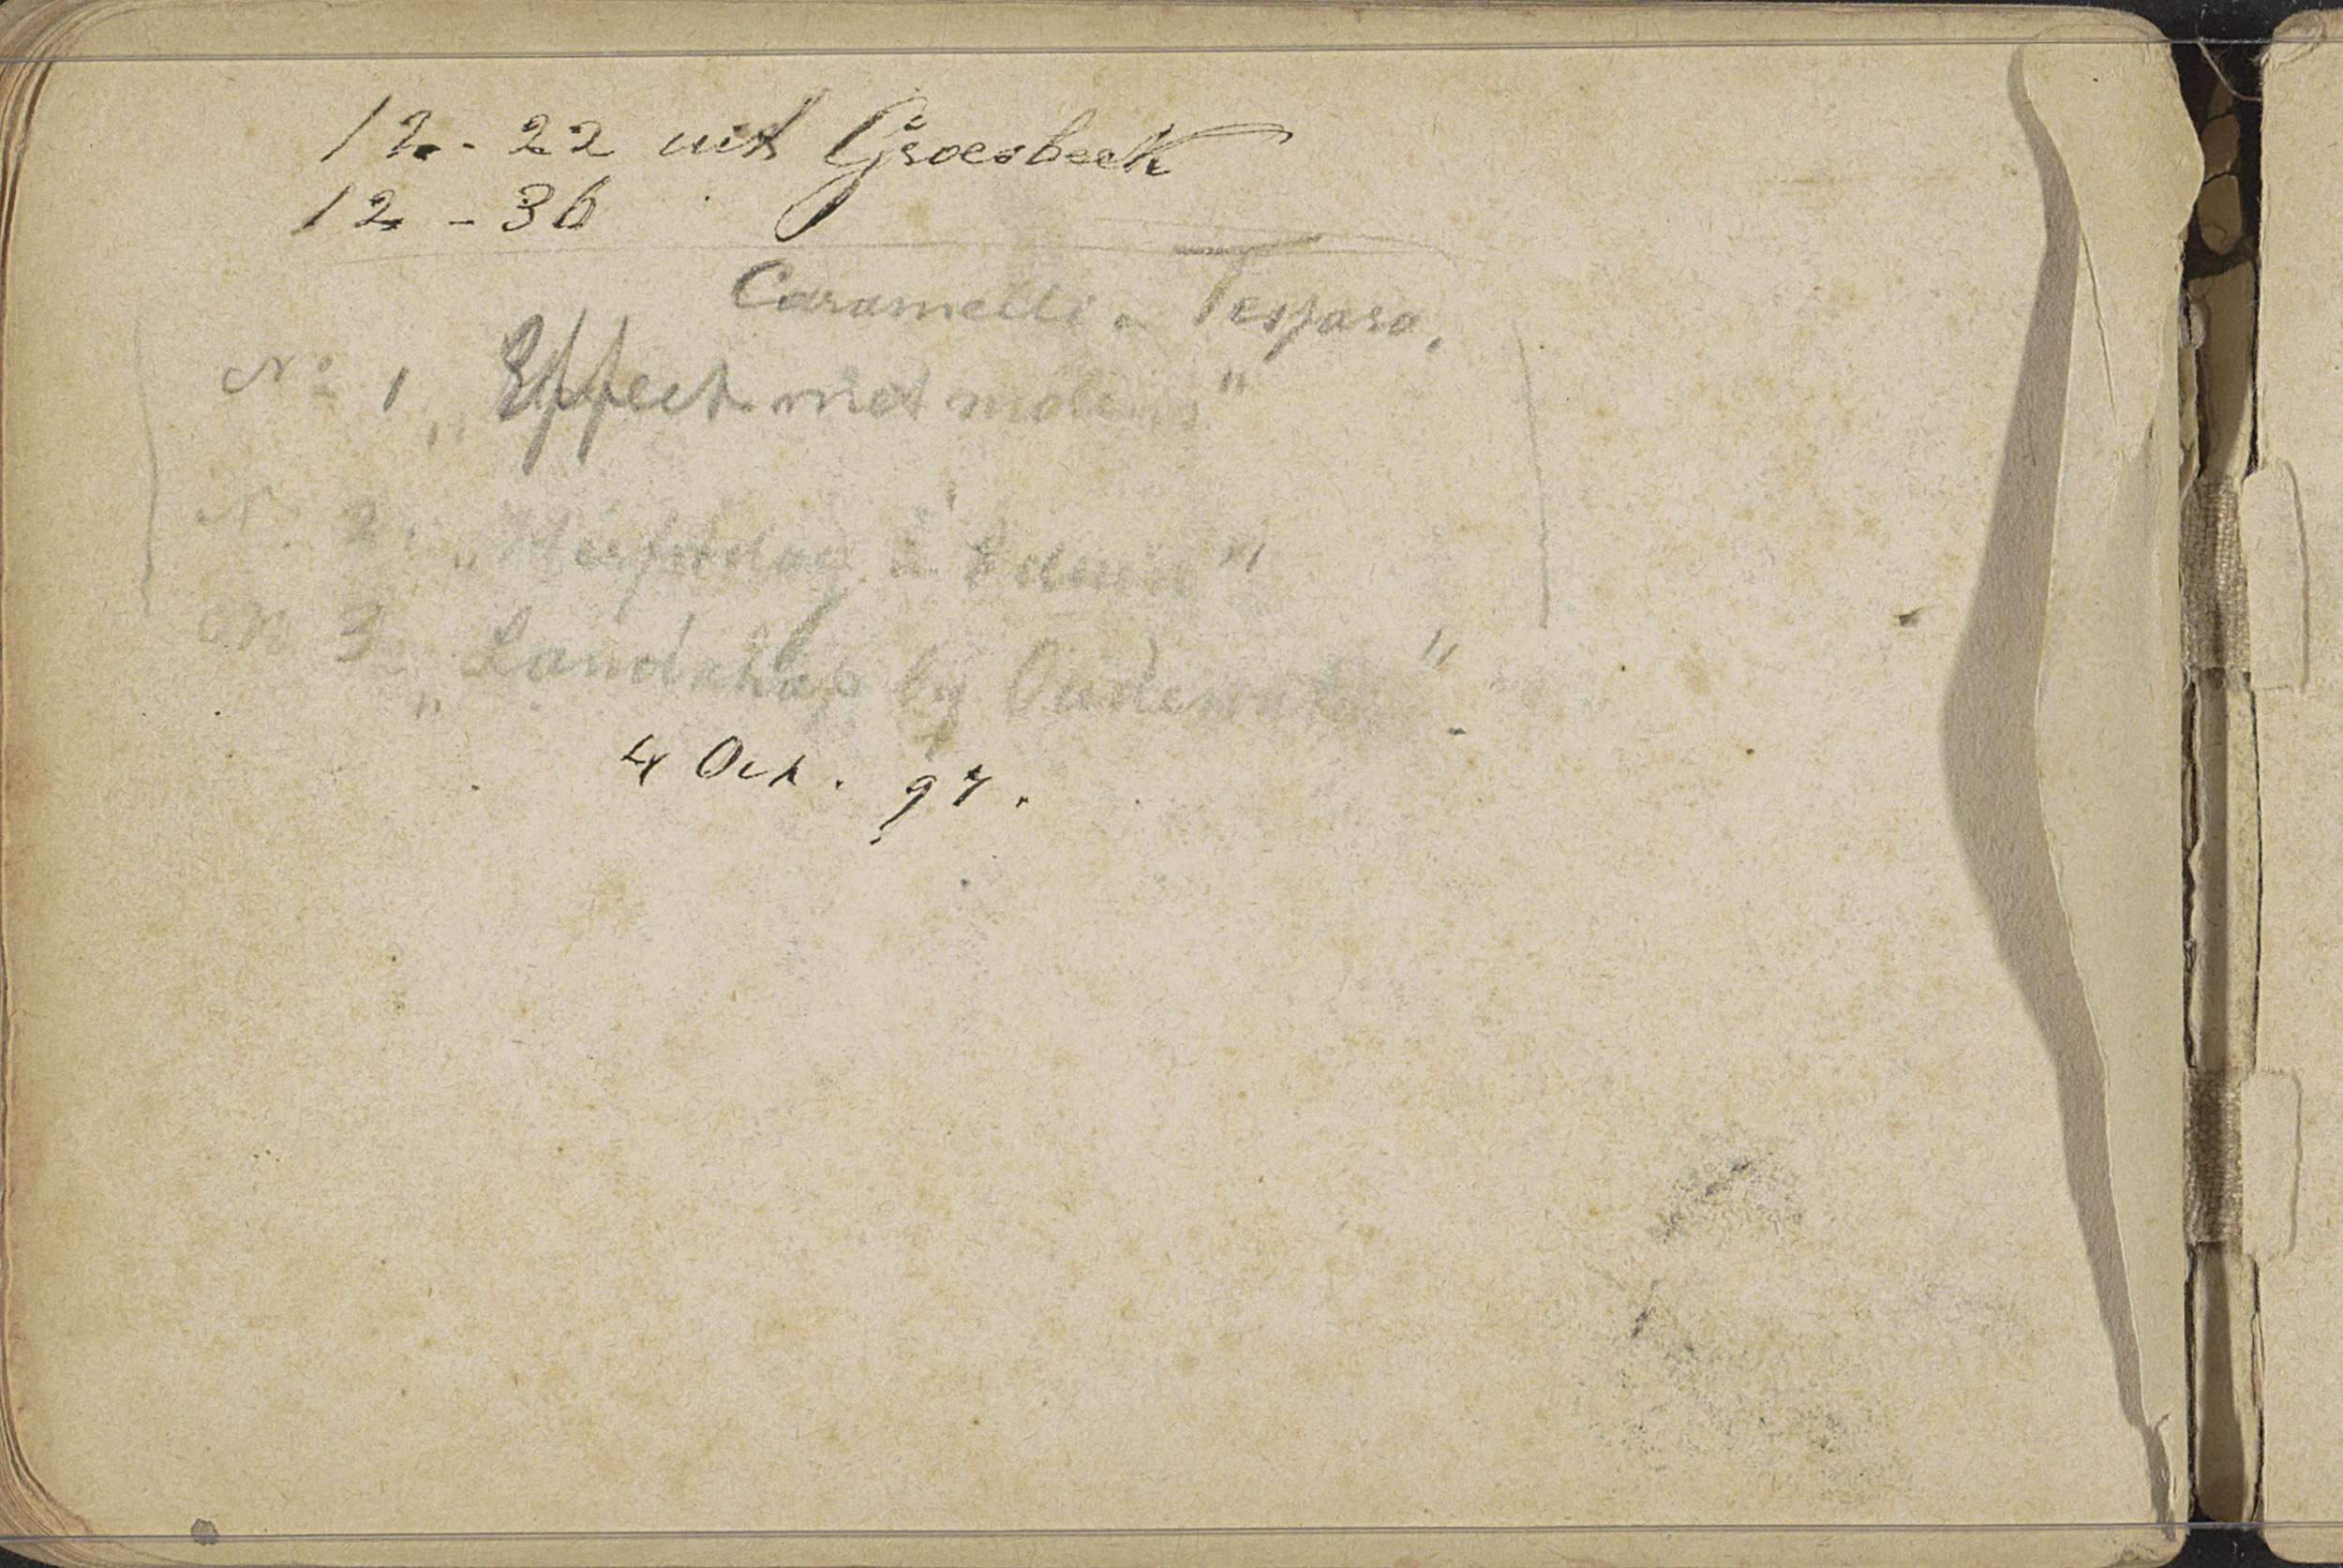 12 - 22 uit Groesbeek
12 - 36
Caramelli & Tessaro.
No 1 „Effect met molens"
N 2 „Herfstdag"
No 3 „Landschap bij Oudewater"
4 Oct. 97.